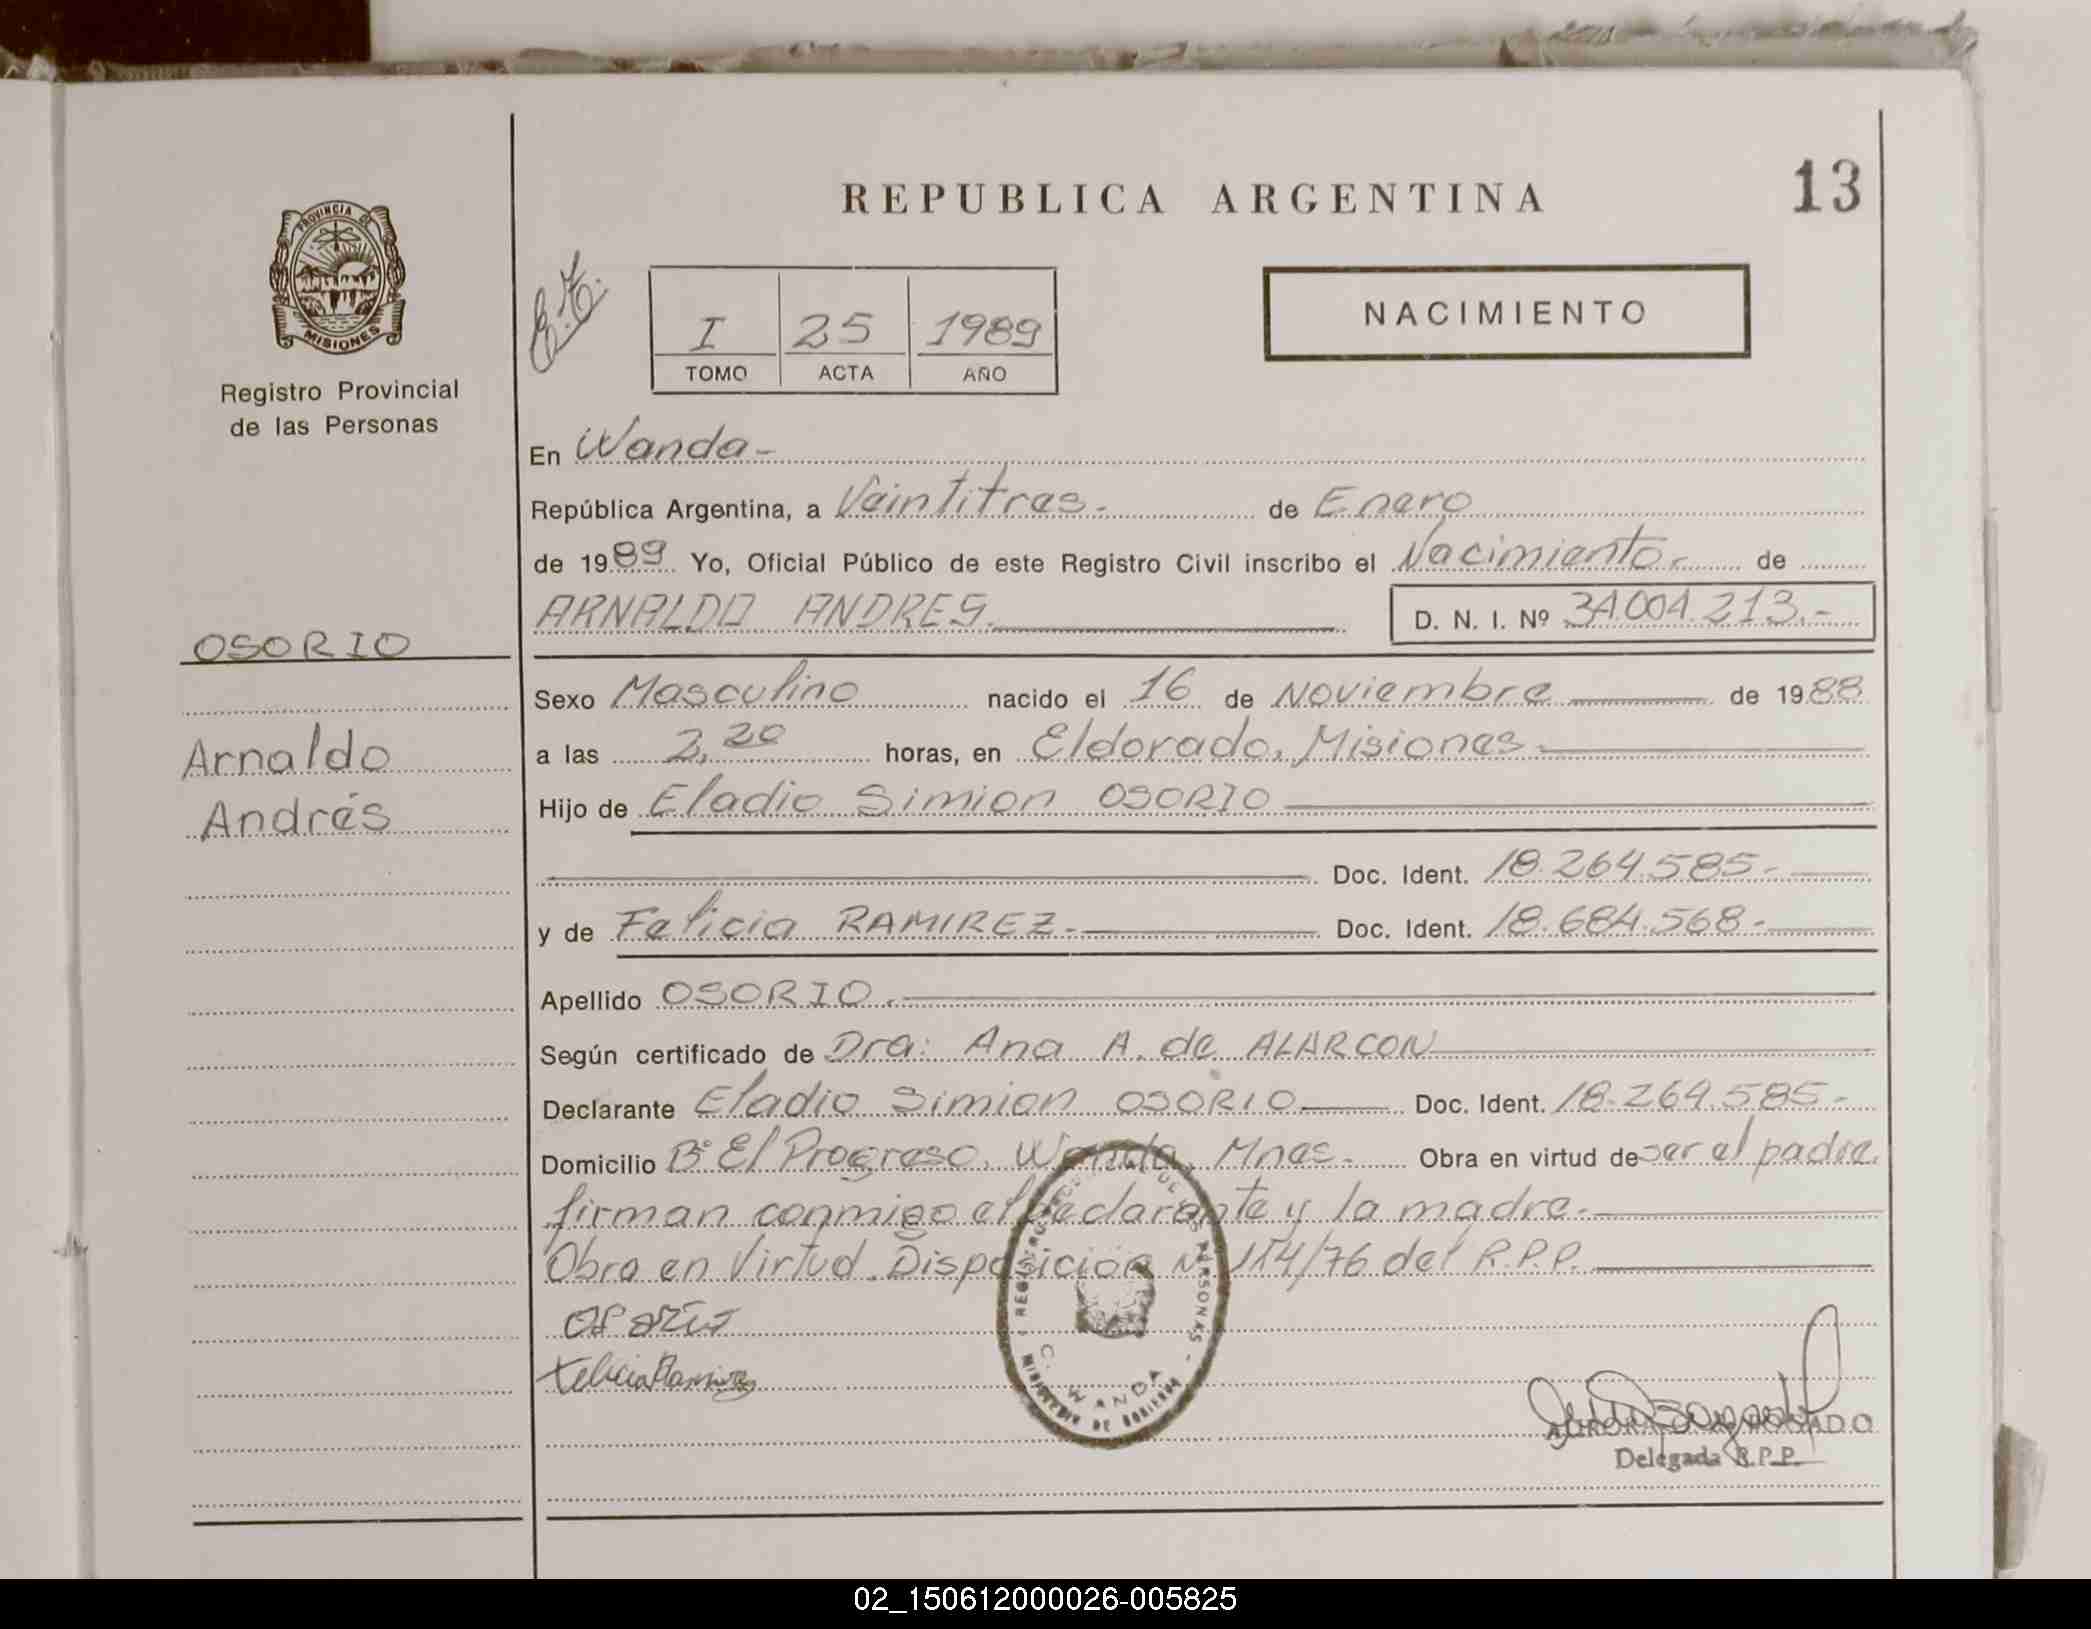 13
REPUBLICA ARGENTINA
PROVINCIA DE
MISIONES
Registro Provincial
de las Personas
E.T.
I 25 1989
TOMO ACTA AÑO
NACIMIENTO
En Wanda-
República Argentina, a Veintitres.- de Enero
de 1989 Yo, Oficial Público de este Registro Civil inscribo el Nacimiento.- de
ARNALDO ANDRES. D. N. I. Nº 34.004.213.-
OSORIO
Arnaldo
Andrés
Sexo Masculino nacido el 16 de Noviembre de 1988
a las 2,20 horas, en Eldorado, Misiones.
Hijo de Eladio Simion OSORIO
Doc. Ident. 18.264.585.-
y de Felicia RAMIREZ.- Doc. Ident. 18.684.568.-
Apellido OSORIO.
Según certificado de Dra: Ana A. de ALARCON
Declarante Eladio Simion OSORIO Doc. Ident. 18.264.585.-
Domicilio Bº El Progreso, Wanda, Mnes. Obra en virtud de ser el padre.
firman conmigo el declarante y la madre.-
Obra en Virtud Disposición Nº 114/76 del R.P.P.
Felicia Ramirez
C. WANDA
Delegada R.P.P.
02_150612000026-005825